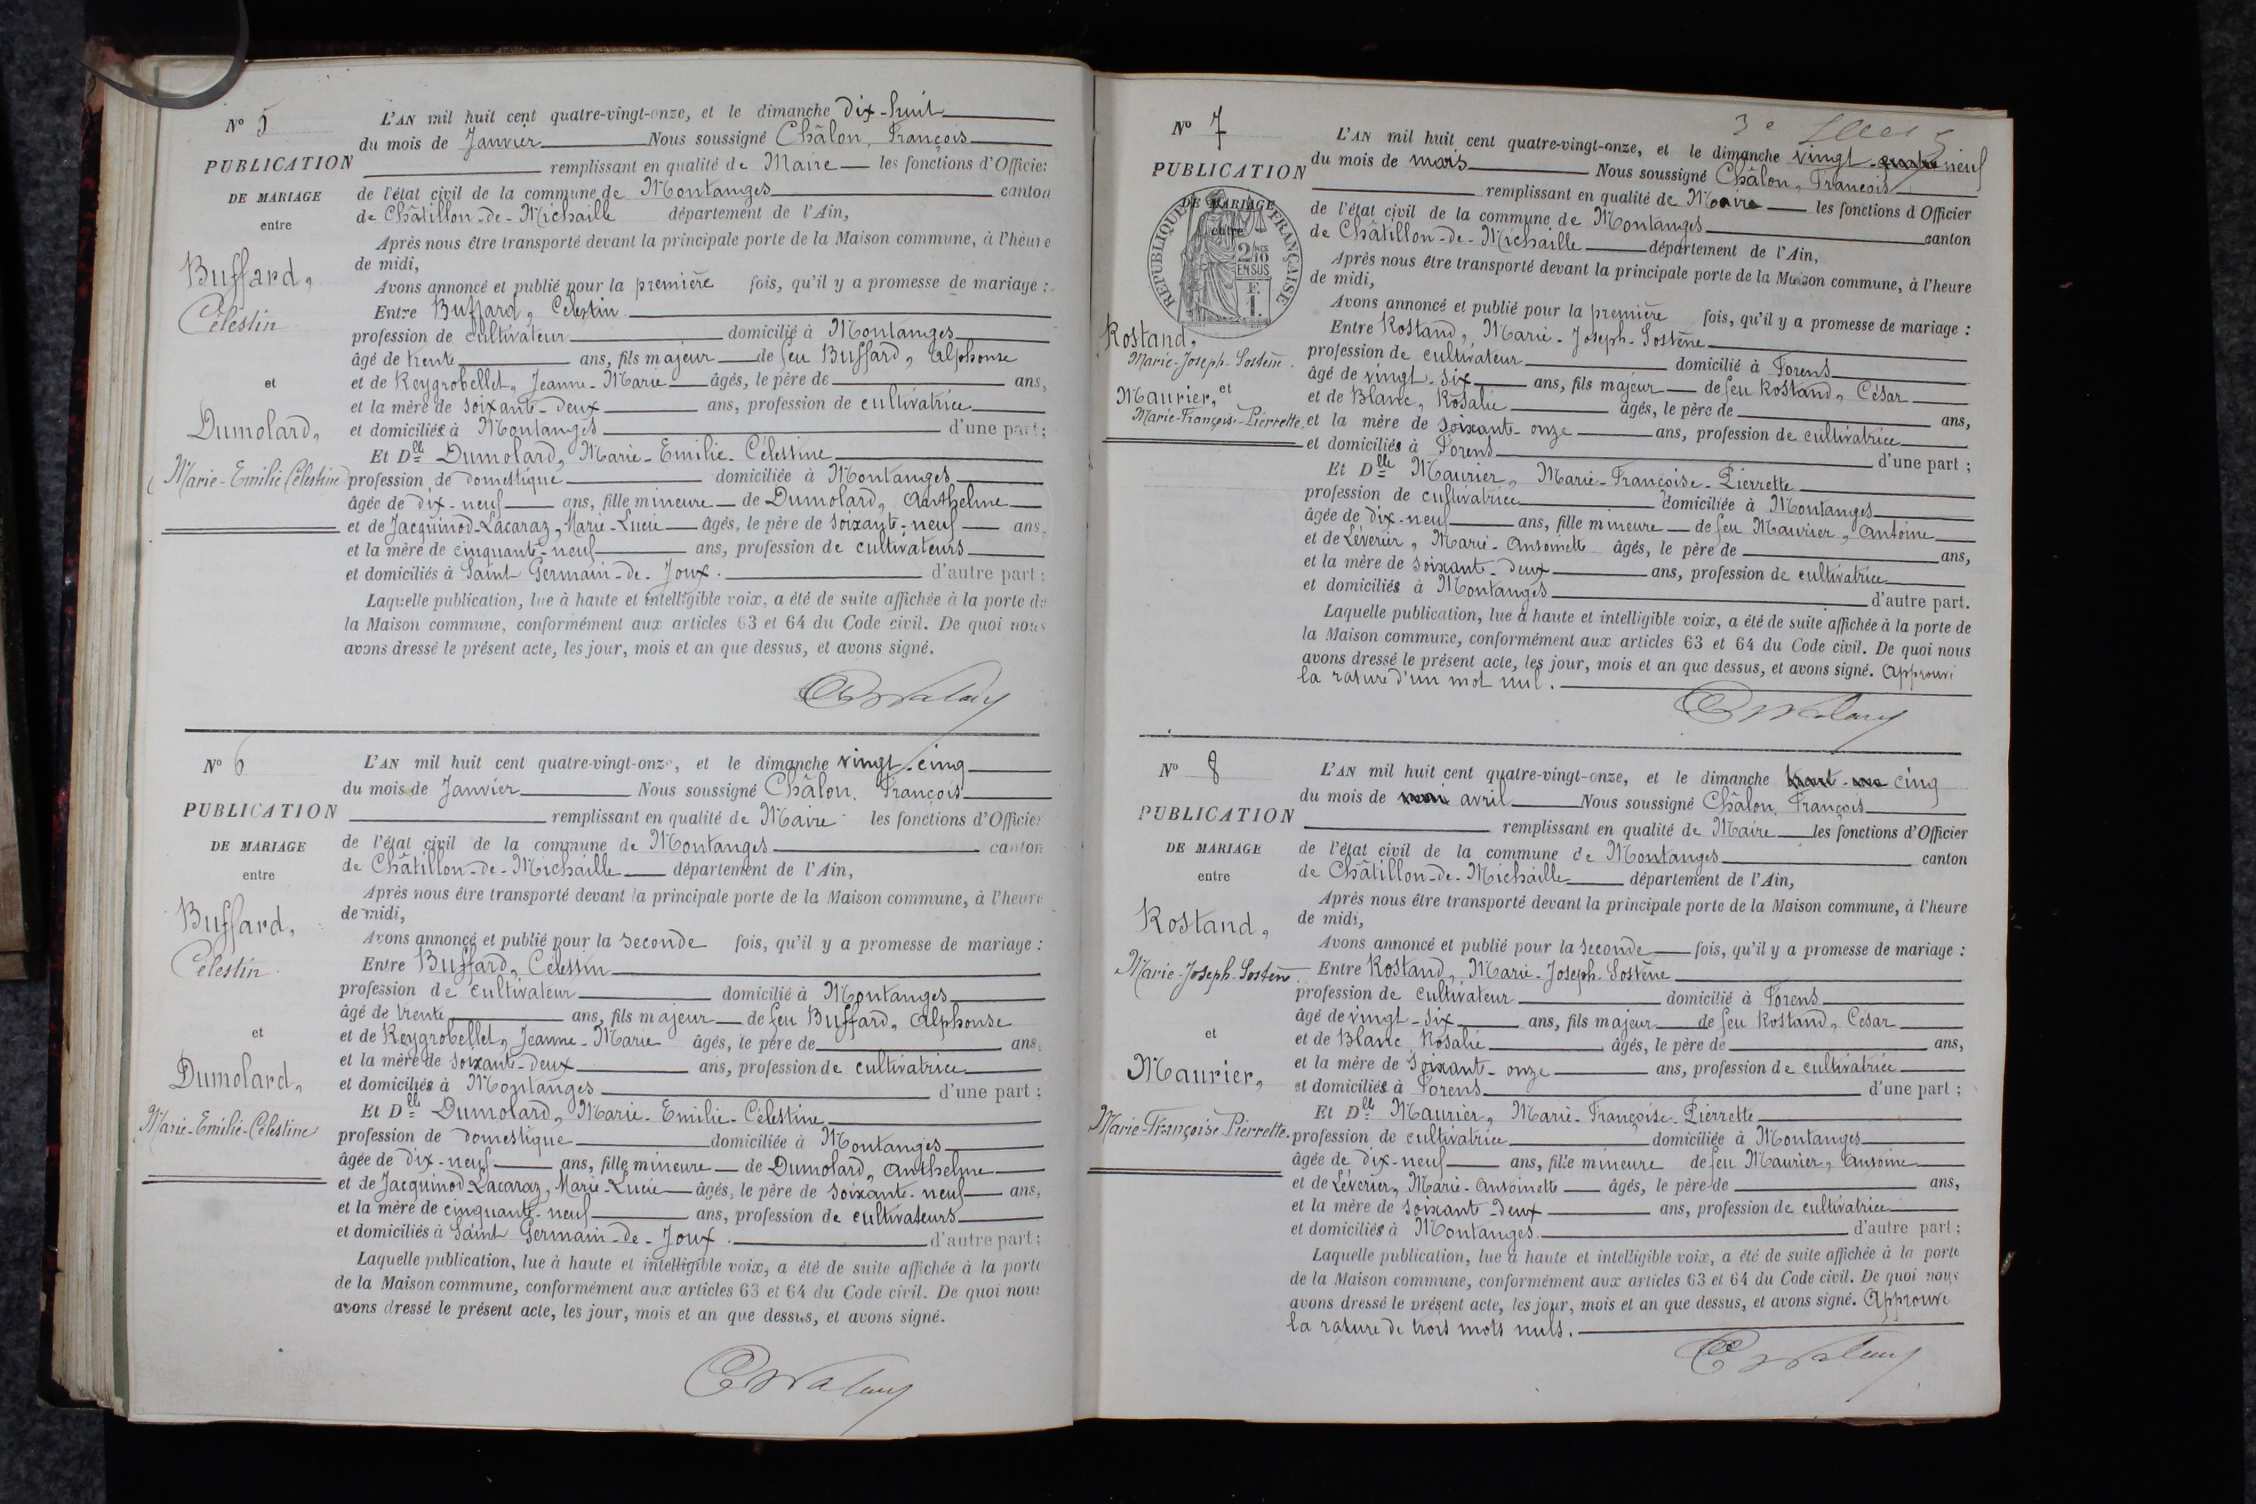 N° 5
PUBLICATION
DE MARIAGE
entre
Buffard,
Célestin
et
Dumolard,
Marie-Emilie-Célestine
L'AN mil huit cent quatre-vingt-onze, et le dimanche dix-huit
du mois de Janvier Nous soussigné Châlon, François
remplissant en qualité de Maire les fonctions d'Officier
de l'état civil de la commune de Montanges canton
de Châtillon-de-Michaille département de l'Ain,
Après nous être transporté devant la principale porte de la Maison commune, à l'heure
de midi,
Avons annoncé et publié pour la première fois, qu'il y a promesse de mariage :
Entre Buffard, Célestin
profession de cultivateur domicilié à Montanges
âgé de trente ans, fils majeur de feu Buffard, Alphonse
et de Reygrobellet, Jeanne-Marie âgés, le père de ans,
et la mère de soixante-deux ans, profession de cultivatrice
et domiciliés à Montanges d'une part ;
Et Dlle Dumolard, Marie-Emilie-Célestine
profession de domestique domiciliée à Montanges
âgée de dix-neuf ans, fille mineure de Dumolard, Anthelme
et de Jacquinod-Lacaraz, Marie-Lucie âgés, le père de soixante-neuf ans,
et la mère de cinquante-neuf ans, profession de cultivateurs
et domiciliés à Saint Germain-de-Joux. d'autre part :
Laquelle publication, lue à haute et intelligible voix, a été de suite affichée à la porte de
la Maison commune, conformément aux articles 63 et 64 du Code civil. De quoi nous
avons dressé le présent acte, les jour, mois et an que dessus, et avons signé.
N° 6
PUBLICATION
DE MARIAGE
entre
Buffard,
Célestin
et
Dumolard,
Marie-Emilie-Célestine
L'AN mil huit cent quatre-vingt-onze, et le dimanche vingt-cinq
du mois de Janvier Nous soussigné Châlon, François
remplissant en qualité de Maire les fonctions d'Officier
de l'état civil de la commune de Montanges canton
de Châtillon-de-Michaille département de l'Ain,
Après nous être transporté devant la principale porte de la Maison commune, à l'heure
de midi,
Avons annoncé et publié pour la seconde fois, qu'il y a promesse de mariage :
Entre Buffard, Célestin
profession de cultivateur domicilié à Montanges
âgé de trente ans, fils majeur de feu Buffard, Alphonse
et de Reygrobellet, Jeanne-Marie âgés, le père de ans,
et la mère de soixante-deux ans, profession de cultivatrice
et domiciliés à Montanges d'une part ;
Et Dlle Dumolard, Marie-Emilie-Célestine
profession de domestique domiciliée à Montanges
âgée de dix-neuf ans, fille mineure de Dumolard, Anthelme
et de Jacquinod-Lacaraz, Marie-Lucie âgés, le père de soixante-neuf ans,
et la mère de cinquante-neuf ans, profession de cultivateurs
et domiciliés à Saint Germain-de-Joux. d'autre part ;
Laquelle publication, lue à haute et intelligible voix, a été de suite affichée à la porte
de la Maison commune, conformément aux articles 63 et 64 du Code civil. De quoi nous
avons dressé le présent acte, les jour, mois et an que dessus, et avons signé.
3e
N° 7
PUBLICATION
DE MARIAGE
entre
RÉPUBLIQUE FRANÇAISE
2/10 EN SUS
F. 1.
Rostand,
Marie-Joseph-Sostène.
et
Maurier,
Marie-Françoise-Pierrette.
L'AN mil huit cent quatre-vingt-onze, et le dimanche vingt-neuf
du mois de mars Nous soussigné Châlon, François
remplissant en qualité de Maire les fonctions d'Officier
de l'état civil de la commune de Montanges canton
de Châtillon-de-Michaille département de l'Ain,
Après nous être transporté devant la principale porte de la Maison commune, à l'heure
de midi,
Avons annoncé et publié pour la première fois, qu'il y a promesse de mariage :
Entre Rostand, Marie-Joseph-Sostène
profession de cultivateur domicilié à Forens
âgé de vingt-six ans, fils majeur de feu Rostand, César
et de Blanc, Rosalie âgés, le père de ans,
et la mère de soixante-onze ans, profession de cultivatrice
et domiciliés à Forens d'une part ;
Et Dlle Maurier, Marie-Françoise-Pierrette
profession de cultivatrice domiciliée à Montanges
âgée de dix-neuf ans, fille mineure de feu Maurier, Antoine
et de Léverier, Marie-Antoinette âgés, le père de ans,
et la mère de soixante-deux ans, profession de cultivatrice
et domiciliés à Montanges d'autre part.
Laquelle publication, lue à haute et intelligible voix, a été de suite affichée à la porte de
la Maison commune, conformément aux articles 63 et 64 du Code civil. De quoi nous
avons dressé le présent acte, les jour, mois et an que dessus, et avons signé. Approuvé
la rature d'un mot nul.
N° 8
PUBLICATION
DE MARIAGE
entre
Rostand,
Marie-Joseph-Sostène.
et
Maurier,
Marie-Françoise-Pierrette.
L'AN mil huit cent quatre-vingt-onze, et le dimanche cinq
du mois de avril Nous soussigné Châlon, François
remplissant en qualité de Maire les fonctions d'Officier
de l'état civil de la commune de Montanges canton
de Châtillon-de-Michaille département de l'Ain,
Après nous être transporté devant la principale porte de la Maison commune, à l'heure
de midi,
Avons annoncé et publié pour la seconde fois, qu'il y a promesse de mariage :
Entre Rostand, Marie-Joseph-Sostène
profession de cultivateur domicilié à Forens
âgé de vingt-six ans, fils majeur de feu Rostand, César
et de Blanc Rosalie âgés, le père de ans,
et la mère de soixante-onze ans, profession de cultivatrice
et domiciliés à Forens d'une part ;
Et Dlle Maurier, Marie-Françoise-Pierrette
profession de cultivatrice domiciliée à Montanges
âgée de dix-neuf ans, fille mineure de feu Maurier, Antoine
et de Léverier, Marie-Antoinette âgés, le père de ans,
et la mère de soixante-deux ans, profession de cultivatrice
et domiciliés à Montanges. d'autre part ;
Laquelle publication, lue à haute et intelligible voix, a été de suite affichée à la porte
de la Maison commune, conformément aux articles 63 et 64 du Code civil. De quoi nous
avons dressé le présent acte, les jour, mois et an que dessus, et avons signé. Approuvé
la rature de trois mots nuls.